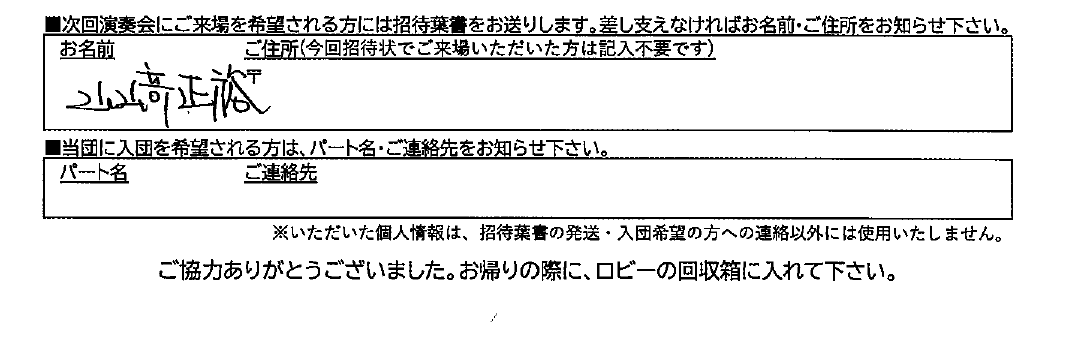 ■次回演奏会にご来場を希望される方には招待葉書をお送りします。差し支えなければお名前・ご住所をお知らせ下さい。
お名前 ご住所(今回招待状でご来場いただいた方は記入不要です)
〒
正裕
■当団に入団を希望される方は、パート名・ご連絡先をお知らせ下さい。
パート名 ご連絡先
※いただいた個人情報は、招待葉書の発送・入団希望の方への連絡以外には使用いたしません。
ご協力ありがとうございました。お帰りの際に、ロビーの回収箱に入れて下さい。